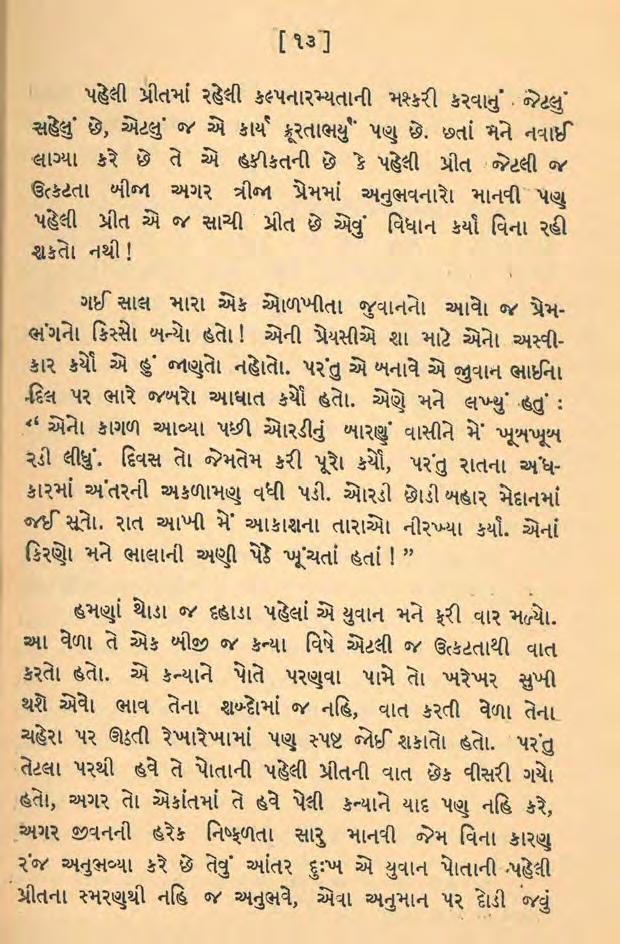 [ ૧૩ ]
પહેલી પ્રીતમાં રહેલી કલ્પનારમ્યતાની મશ્કરી કરવાનું જેટલું
સહેલું છે, એટલું જ એ કાર્ય ક્રૂરતાભર્યું પણ છે. છતાં મને નવાઈ
લાગ્યા કરે છે તે એ હકીકતની છે કે પહેલી પ્રીત જેટલી જ
ઉત્કટતા બીજા અગર ત્રીજા પ્રેમમાં અનુભવનારો માનવી પણ
પહેલી પ્રીત એ જ સાચી પ્રીત છે એવું વિધાન કર્યા વિના રહી
શકતો નથી !
ગઈ સાલ મારા એક ઓળખીતા જુવાનનો આવો જ પ્રેમ-
ભંગનો કિસ્સો બન્યો હતો ! એની પ્રેયસીએ શા માટે એનો અસ્વી-
કાર કર્યો એ હું જાણતો નહોતો. પરંતુ એ બનાવે એ જુવાન ભાઈના
દિલ પર ભારે જબરો આઘાત કર્યો હતો. એણે મને લખ્યું હતું :
“ એનો કાગળ આવ્યા પછી ઓરડીનું બારણું વાસીને મેં ખૂબખૂબ
રડી લીધું. દિવસ તો જેમતેમ કરી પૂરો કર્યો, પરંતુ રાતના અંધ-
કારમાં અંતરની અકળામણ વધી પડી. ઓરડી છોડી બહાર મેદાનમાં
જઈ સૂતો. રાત આખી મેં આકાશના તારાઓ નીરખ્યા કર્યા. એનાં
કિરણો મને ભાલાની અણી પેઠે ખૂંચતાં હતાં ! ”
હમણાં થોડા જ દહાડા પહેલાં એ યુવાન મને ફરી વાર મળ્યો.
આ વેળા તે એક બીજી જ કન્યા વિષે એટલી જ ઉત્કટતાથી વાત
કરતો હતો. એ કન્યાને પોતે પરણવા પામે તો ખરેખર સુખી
થશે એવો ભાવ તેના શબ્દોમાં જ નહિ, વાત કરતી વેળા તેના
ચહેરા પર ઊઠતી રેખારેખામાં પણ સ્પષ્ટ જોઈ શકાતો હતો. પરંતુ
તેટલા પરથી હવે તે પોતાની પહેલી પ્રીતની વાત છેક વીસરી ગયો
હતો, અગર તો એકાંતમાં તે હવે પેલી કન્યાને યાદ પણ નહિ કરે,
અગર જીવનની હરેક નિષ્ફળતા સારુ માનવી જેમ વિના કારણ
રંજ અનુભવ્યા કરે છે તેવું આંતર દુઃખ એ યુવાન પોતાની પહેલી
પ્રીતના સ્મરણથી નહિ જ અનુભવે, એવા અનુમાન પર દોડી જવું